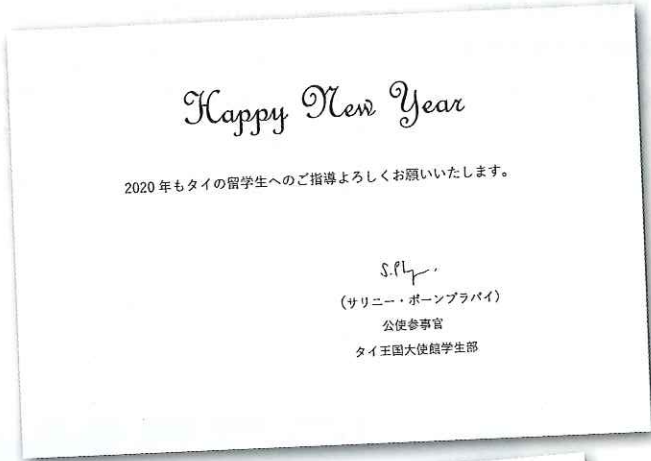 Happy New Year
2020年もタイの留学生へのご指導よろしくお願いいたします。
(サリニー・ポーンプラパイ)
公使参事官
タイ王国大使館学生部